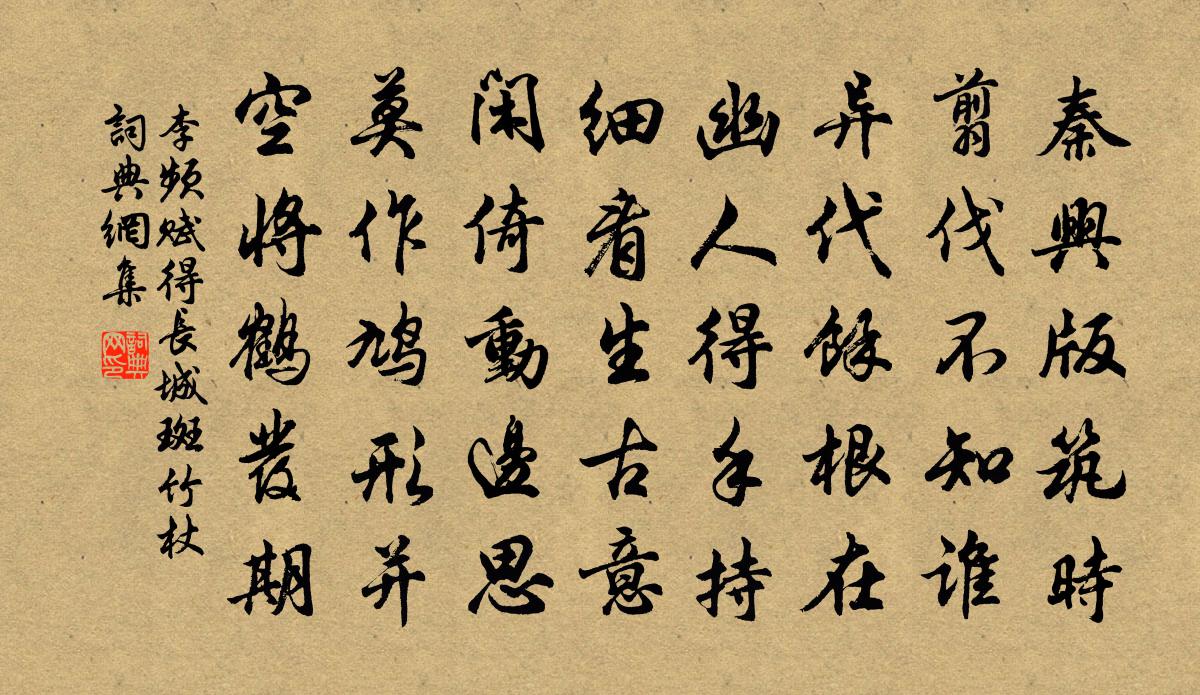 秦興版筑時
翦伐不知誰
异代餘根在
幽人得手持
細看生古意
閑倚動邊思
莫作鳩形并
空將鶴發期
李頻賦得長城斑竹杖
詞典網集
詞典
网印